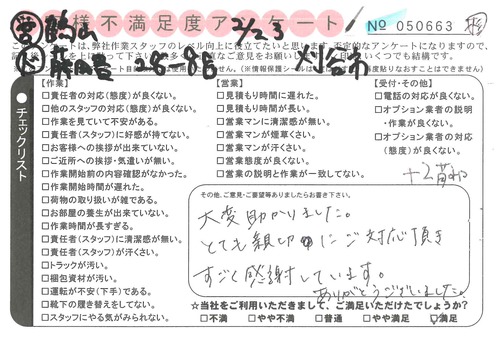 お客様不満足度アンケート
No 050663
2/23
刈谷市
このアンケートは、弊社作業スタッフのレベル向上に役立てたいと思います。否定的なアンケートになりますので、
チェックリスト
【作業】
□責任者の対応(態度)が良くない。
□他のスタッフの対応(態度)が良くない。
□作業を見ていて不安がある。
□責任者(スタッフ)に好感が持てない。
□お客様への挨拶が出来ていない。
□ご近所への挨拶・気遣いが無い。
□作業開始前の内容確認がなかった。
□作業開始時間が遅れた。
□荷物の取り扱いが雑である。
□お部屋の養生が出来ていない。
□作業時間が長すぎる。
□責任者(スタッフ)に清潔感が無い。
□責任者(スタッフ)が汗くさい。
□トラックが汚い。
□梱包資材が汚い。
□運転が不安(下手)である。
□靴下の履き替えをしてない。
□スタッフにやる気がみられない。
【営業】
□見積もり時間に遅れた。
□見積もり時間が長い。
□営業マンに清潔感が無い。
□営業マンが煙草くさい。
□営業マンが汗くさい。
□営業態度が良くない。
□営業の説明と作業が一致してない。
【受付・その他】
□電話の対応が良くない。
□オプション業者の説明
・作業が良くない。
□オプション業者の対応
(態度)が良くない。
その他、ご意見・ご要望等ありましたらお書き下さい。
大変助かりました。
とても親切にご対応頂き
すごく感謝しています。
ありがとうございました。
☆当社をご利用いただきまして、ご満足いただけたでしょうか?
□不満 □やや不満 □普通 □やや満足 ☑満足